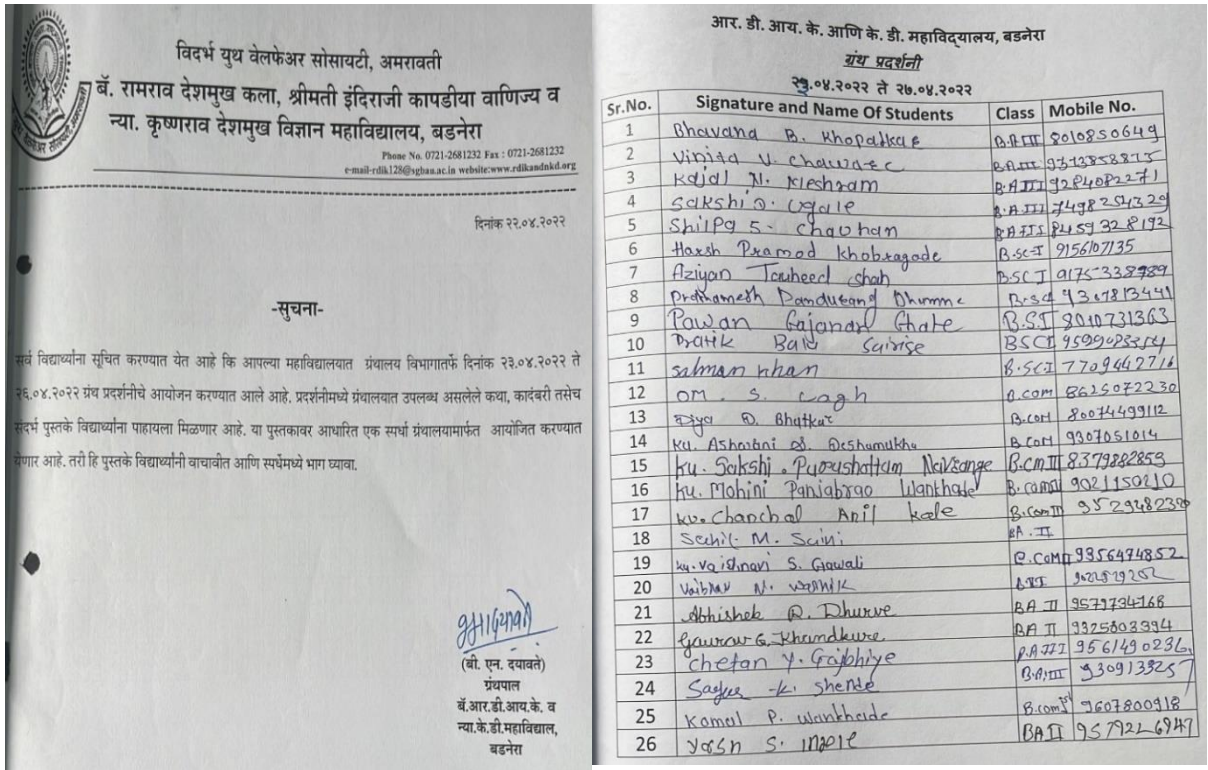 विदर्भ युथ वेलफेअर सोसायटी, अमरावती
बॅ. रामराव देशमुख कला, श्रीमती इंदिराजी कापडीया वाणिज्य व
न्या. कृष्णराव देशमुख विज्ञान महाविद्यालय, बडनेरा
Phone No. 0721-2681232 Fax : 0721-2681232
e-mail-rdik128@sgbau.ac.in website:www.rdikandnkd.org
दिनांक २२.०४.२०२२
-सुचना-
सर्व विद्यार्थ्यांना सूचित करण्यात येत आहे कि आपल्या महाविद्यालयात ग्रंथालय विभागातर्फे दिनांक २३.०४.२०२२ ते
२६.०४.२०२२ ग्रंथ प्रदर्शनीचे आयोजन करण्यात आले आहे. प्रदर्शनीमध्ये ग्रंथालयात उपलब्ध असलेले कथा, कादंबरी तसेच
संदर्भ पुस्तके विद्यार्थ्यांना पाहायला मिळणार आहे. या पुस्तकावर आधारित एक स्पर्धा ग्रंथालयामार्फत आयोजित करण्यात
येणार आहे. तरी हि पुस्तके विद्यार्थ्यांनी वाचावीत आणि स्पर्धेमध्ये भाग घ्यावा.
(बी. एन. दयावते)
ग्रंथपाल
बॅ.आर.डी.आय.के. व
न्या.के.डी.महाविद्याल,
बडनेरा
आर. डी. आय. के. आणि के. डी. महाविद्यालय, बडनेरा
ग्रंथ प्रदर्शनी
२३.०४.२०२२ ते २७.०४.२०२२
Sr.No. Signature and Name Of Students Class Mobile No.
1 Bhavana B. Khopatkar B.A III 8010850649
2 Vinita V. B.A III
3 Kajal N. Meshram B.A III 9284082271
4 Sakshi D. Ugale B.A III 7498254320
5 Shilpa S. Chavhan B.A III 8459328192
6 Harsh Pramod Khobragade B.sc-I 9156107135
7 Aziyan Tauheed shah B.SC I
8 Prathamesh Pandurang B.sc I
9 Pawan Gajanan Ghate B.S.I 8010731363
10 Pratik BSC I
11 salman khan B.SC I 7709442716
12 OM. S. Wagh B.com 8625072230
13 Diya D. Bhatkar B.com 8007449912
14 Ku. Ashwini S. Deshamukha B.com 9307051014
15 Ku. Sakshi. Purushattam Navrange B.cm II 8379882853
16 Ku. Mohini Panjabrao Wankhade B.com II 9021150210
17 Ku. Chanchal Anil kale B.com II
18 Sahil M. Saini BA. II
19 Ku. Vaishnavi S. Gawali B.com II 9356474852
20 Vaibhav N. Wasnik
21 Abhishek R. Dhurve BA II 9579734168
22 Gaurav G. Khandkure BA II 9325603394
23 Chetan Y. Gajbhiye B.A III 9561490236
24 Sagar K. Shende B.A. III
25 Komal P. Wankhade B.com 9607800918
26 Yash S. Ingole BA II